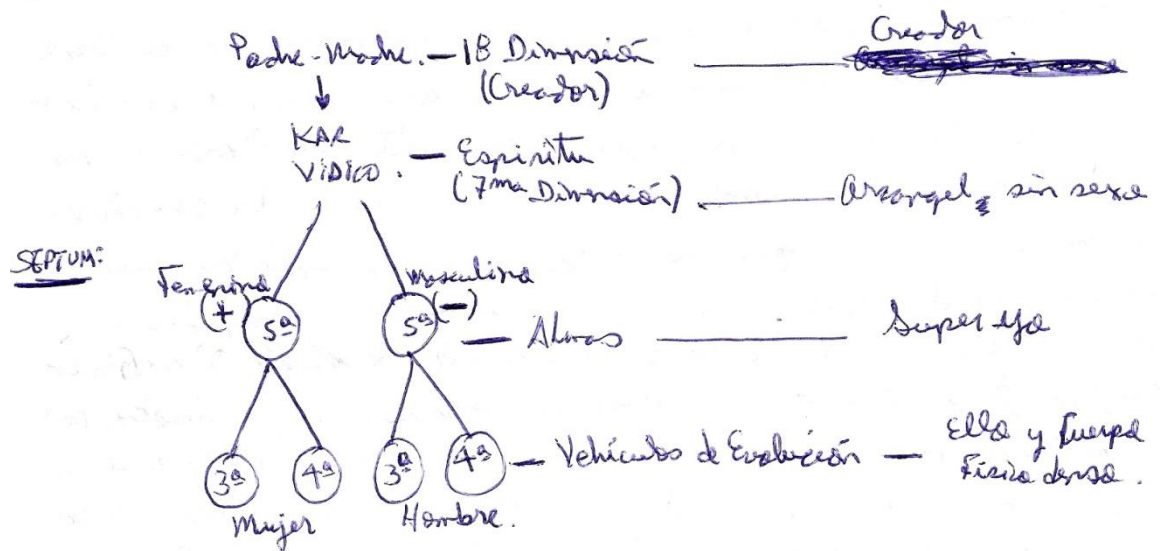 Padre-Madre. — 18 Dimensión — Creador
(Creador)
KAR — Espíritu
VIDICO. (7ma Dimensión) — Arcangel, sin sexo
SEPTUM:
Femenina masculina
(+) 5ª 5ª (—) — Almas — Super yo
3ª 4ª 3ª 4ª — Vehículos de Evolución — Ello y Cuerpo
Físico denso.
Mujer Hombre.